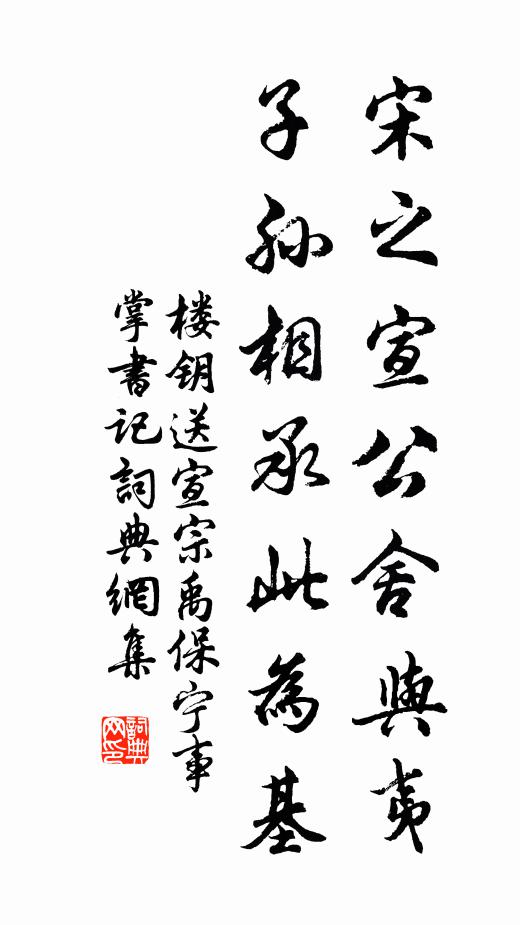 宋之宣公舍與夷
子孫相承此為基
楼钥送宣宗禹保宁事
掌書记詞典網集
詞典网印